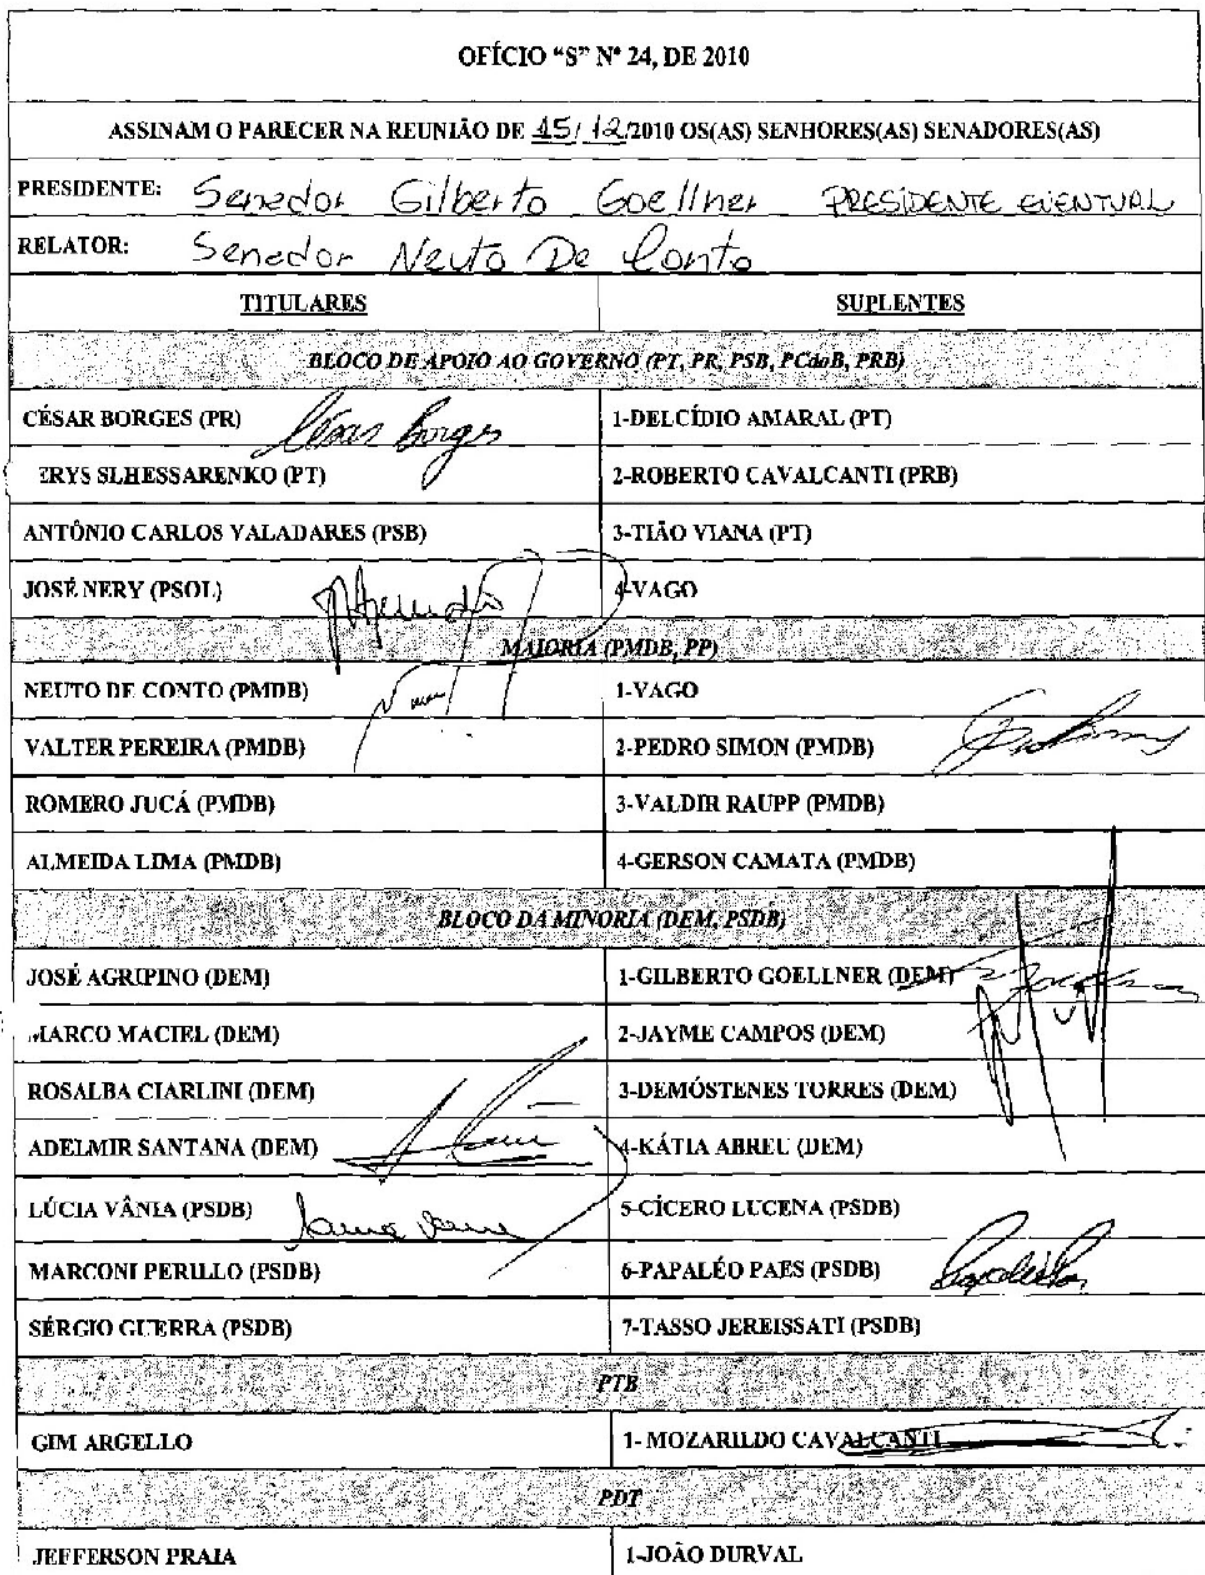 OFÍCIO “S” Nº 24, DE 2010
ASSINAM O PARECER NA REUNIÃO DE 15/12/2010 OS(AS) SENHORES(AS) SENADORES(AS)
PRESIDENTE: Senador Gilberto Goellner PRESIDENTE EVENTUAL
RELATOR: Senador Neuto De Conto
TITULARES SUPLENTES
BLOCO DE APOIO AO GOVERNO (PT, PR, PSB, PCdoB, PRB)
CÉSAR BORGES (PR) César Borges 1-DELCÍDIO AMARAL (PT)
ERYS SLHESSARENKO (PT) 2-ROBERTO CAVALCANTI (PRB)
ANTÔNIO CARLOS VALADARES (PSB) 3-TIÃO VIANA (PT)
JOSÉ NERY (PSOL) 4-VAGO
MAIORIA (PMDB, PP)
NEUTO DE CONTO (PMDB) 1-VAGO
VALTER PEREIRA (PMDB) 2-PEDRO SIMON (PMDB)
ROMERO JUCÁ (PMDB) 3-VALDIR RAUPP (PMDB)
ALMEIDA LIMA (PMDB) 4-GERSON CAMATA (PMDB)
BLOCO DA MINORIA (DEM, PSDB)
JOSÉ AGRIPINO (DEM) 1-GILBERTO GOELLNER (DEM)
MARCO MACIEL (DEM) 2-JAYME CAMPOS (DEM)
ROSALBA CIARLINI (DEM) 3-DEMÓSTENES TORRES (DEM)
ADELMIR SANTANA (DEM) 4-KÁTIA ABREU (DEM)
LÚCIA VÂNIA (PSDB) 5-CÍCERO LUCENA (PSDB)
MARCONI PERILLO (PSDB) 6-PAPALÉO PAES (PSDB)
SÉRGIO GUERRA (PSDB) 7-TASSO JEREISSATI (PSDB)
PTB
GIM ARGELLO 1- MOZARILDO CAVALCANTI
PDT
JEFFERSON PRAIA 1-JOÃO DURVAL